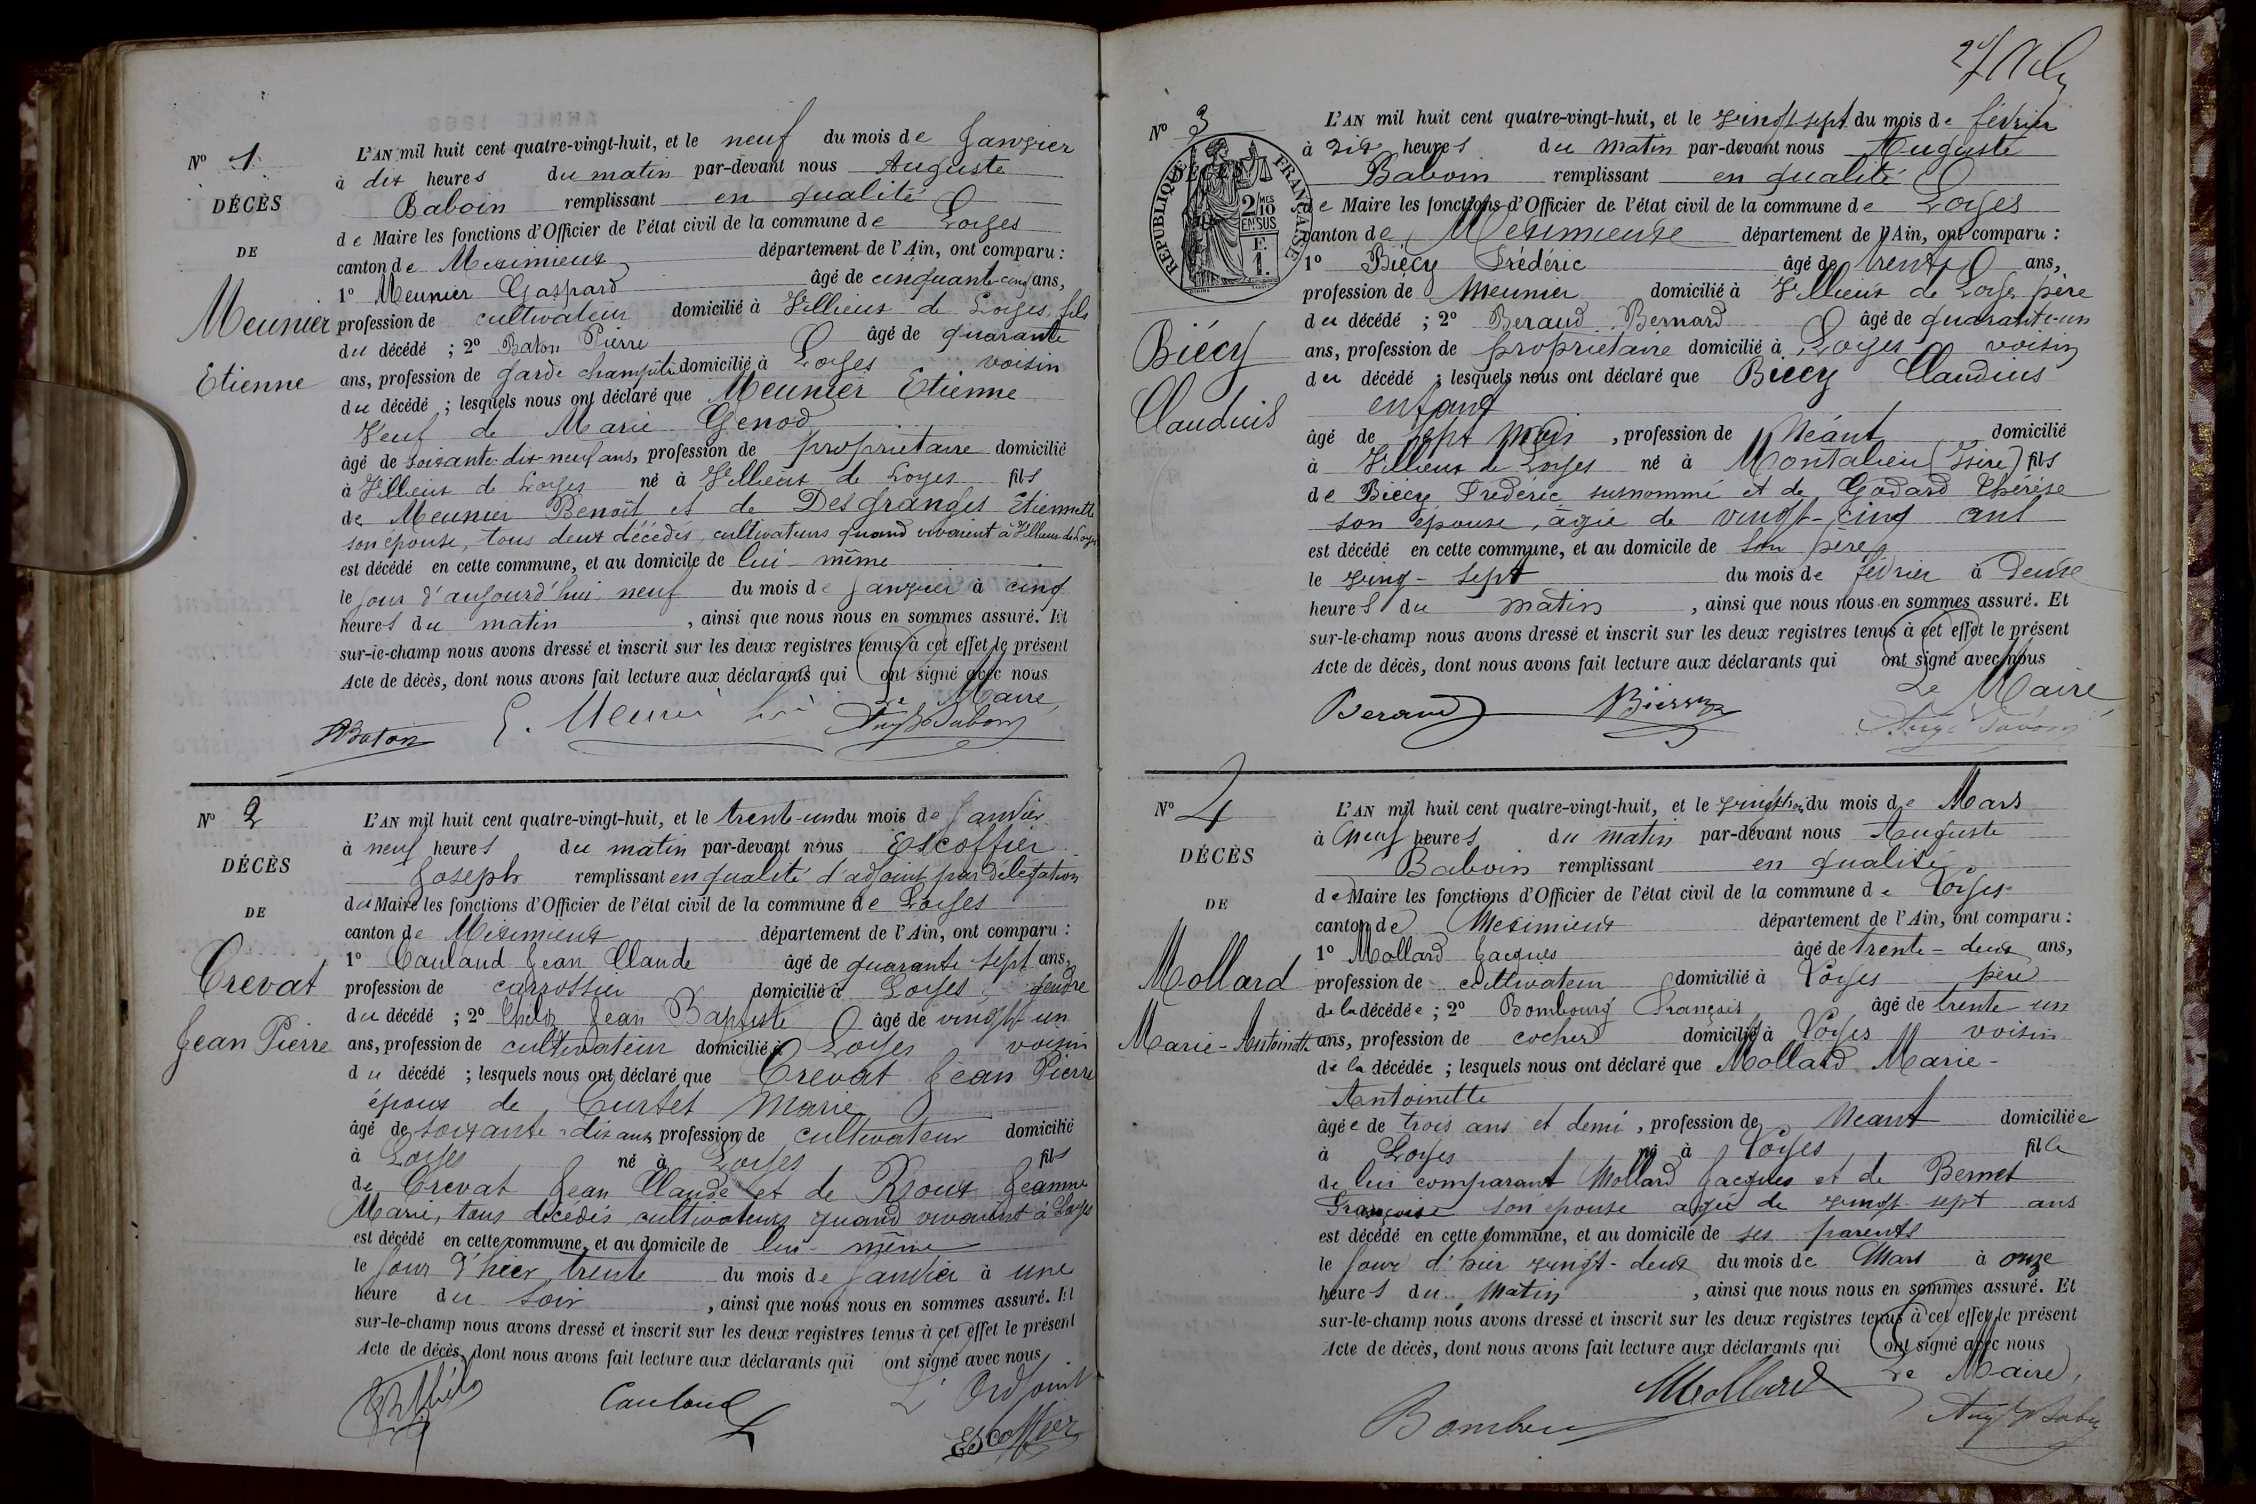 Nº 1
DÉCÈS
DE
Meunier
Etienne
L'AN mil huit cent quatre-vingt-huit, et le neuf du mois de Janvier
à dix heures du matin par-devant nous Auguste
Baboin remplissant en qualité
de Maire les fonctions d'Officier de l'état civil de la commune de Loyes
canton de Meximieux département de l'Ain, ont comparu :
1º Meunier Gaspard âgé de cinquante-cinq ans,
profession de cultivateur domicilié à Villieux de Loyes, fils
du décédé ; 2º Baton Pierre âgé de quarante
ans, profession de garde champêtre domicilié à Loyes voisin
du décédé ; lesquels nous ont déclaré que Meunier Etienne
Veuf de Marie Genod
âgé de soixante-dix-neuf ans, profession de propriétaire domicilié
à Villieux de Loyes né à Villieux de Loyes fils
de Meunier Benoît et de Desgranges Etiennette
son épouse, tous deux décédés, cultivateurs quand vivaient à Villieux de Loyes
est décédé en cette commune, et au domicile de lui-même
le jour d'aujourd'hui neuf du mois de Janvier à cinq
heures du matin , ainsi que nous nous en sommes assuré. Et
sur-le-champ nous avons dressé et inscrit sur les deux registres tenus à cet effet le présent
Acte de décès, dont nous avons fait lecture aux déclarants qui ont signé avec nous
Le Maire,
Baton G. Meunier Aug. Baboin
Nº 2
DÉCÈS
DE
Crevat
Jean Pierre
L'AN mil huit cent quatre-vingt-huit, et le trente-un du mois de Janvier
à neuf heures du matin par-devant nous Escoffier
Joseph remplissant en qualité d'adjoint par délégation
du Maire les fonctions d'Officier de l'état civil de la commune de Loyes
canton de Meximieux département de l'Ain, ont comparu :
1º Cauland Jean Claude âgé de quarante sept ans,
profession de carrossier domicilié à Loyes, gendre
du décédé ; 2º Jean Baptiste âgé de vingt-un
ans, profession de cultivateur domicilié à Loyes voisin
du décédé ; lesquels nous ont déclaré que Crevat Jean Pierre
époux de Curtet Marie
âgé de soixante-dix ans profession de cultivateur domicilié
à Loyes né à Loyes fils
de Crevat Jean Claude et de Roux Jeanne
Marie, tous décédés cultivateurs quand vivaient à Loyes
est décédé en cette commune, et au domicile de lui-même
le jour d'hier trente du mois de Janvier à une
heure du soir , ainsi que nous nous en sommes assuré. Et
sur-le-champ nous avons dressé et inscrit sur les deux registres tenus à cet effet le présent
Acte de décès, dont nous avons fait lecture aux déclarants qui ont signé avec nous
L'Adjoint
Cauland Escoffier
Nº 3
RÉPUBLIQUE FRANÇAISE
2/10MES EN SUS
F. 1.
DÉCÈS
Biécy
Claudius
L'AN mil huit cent quatre-vingt-huit, et le vingt sept du mois de février
à dix heures du matin par-devant nous Auguste
Baboin remplissant en qualité
de Maire les fonctions d'Officier de l'état civil de la commune de Loyes
canton de Meximieux département de l'Ain, ont comparu :
1º Biécy Frédéric âgé de trente ans,
profession de Meunier domicilié à Villieux de Loyes père
du décédé ; 2º Beraud Bernard âgé de quarante-un
ans, profession de propriétaire domicilié à Loyes voisin
du décédé ; lesquels nous ont déclaré que Biécy Claudius
enfant
âgé de sept mois , profession de Néant domicilié
à Villieux de Loyes né à Montalieu (Isère) fils
de Biécy Frédéric susnommé et de Godard Thérèse
son épouse, âgée de vingt-cinq ans
est décédé en cette commune, et au domicile de son père
le vingt-sept du mois de février à deux
heures du matin , ainsi que nous nous en sommes assuré. Et
sur-le-champ nous avons dressé et inscrit sur les deux registres tenus à cet effet le présent
Acte de décès, dont nous avons fait lecture aux déclarants qui ont signé avec nous
Le Maire,
Beraud Aug. Baboin
Nº 4
DÉCÈS
DE
Mollard
Marie-Antoinette
L'AN mil huit cent quatre-vingt-huit, et le vingt-trois du mois de Mars
à neuf heures du matin par-devant nous Auguste
Baboin remplissant en qualité
de Maire les fonctions d'Officier de l'état civil de la commune de Loyes
canton de Meximieux département de l'Ain, ont comparu :
1º Mollard Jacques âgé de trente-deux ans,
profession de cultivateur domicilié à Loyes père
de la décédée ; 2º Bombourg François âgé de trente un
ans, profession de cocher domicilié à Loyes voisin
de la décédée ; lesquels nous ont déclaré que Mollard Marie-
Antoinette
âgée de trois ans et demi , profession de Néant domiciliée
à Loyes né à Loyes fille
de lui comparant Mollard Jacques et de Bernet
Françoise son épouse agée de vingt-sept ans
est décédé en cette commune, et au domicile de ses parents
le jour d'hier vingt-deux du mois de Mars à onze
heures du Matin , ainsi que nous nous en sommes assuré. Et
sur-le-champ nous avons dressé et inscrit sur les deux registres tenus à cet effet le présent
Acte de décès, dont nous avons fait lecture aux déclarants qui ont signé avec nous
Le Maire,
Mollard